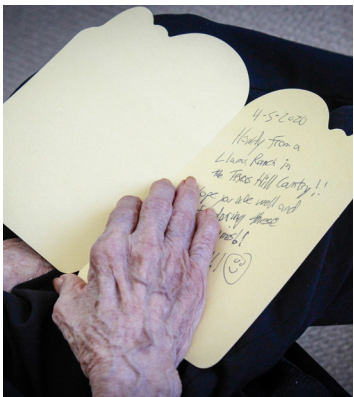 4-5-2020
Howdy from a
Llama Ranch in
the Texas Hill Country!!
Hope you are well and
these
!!